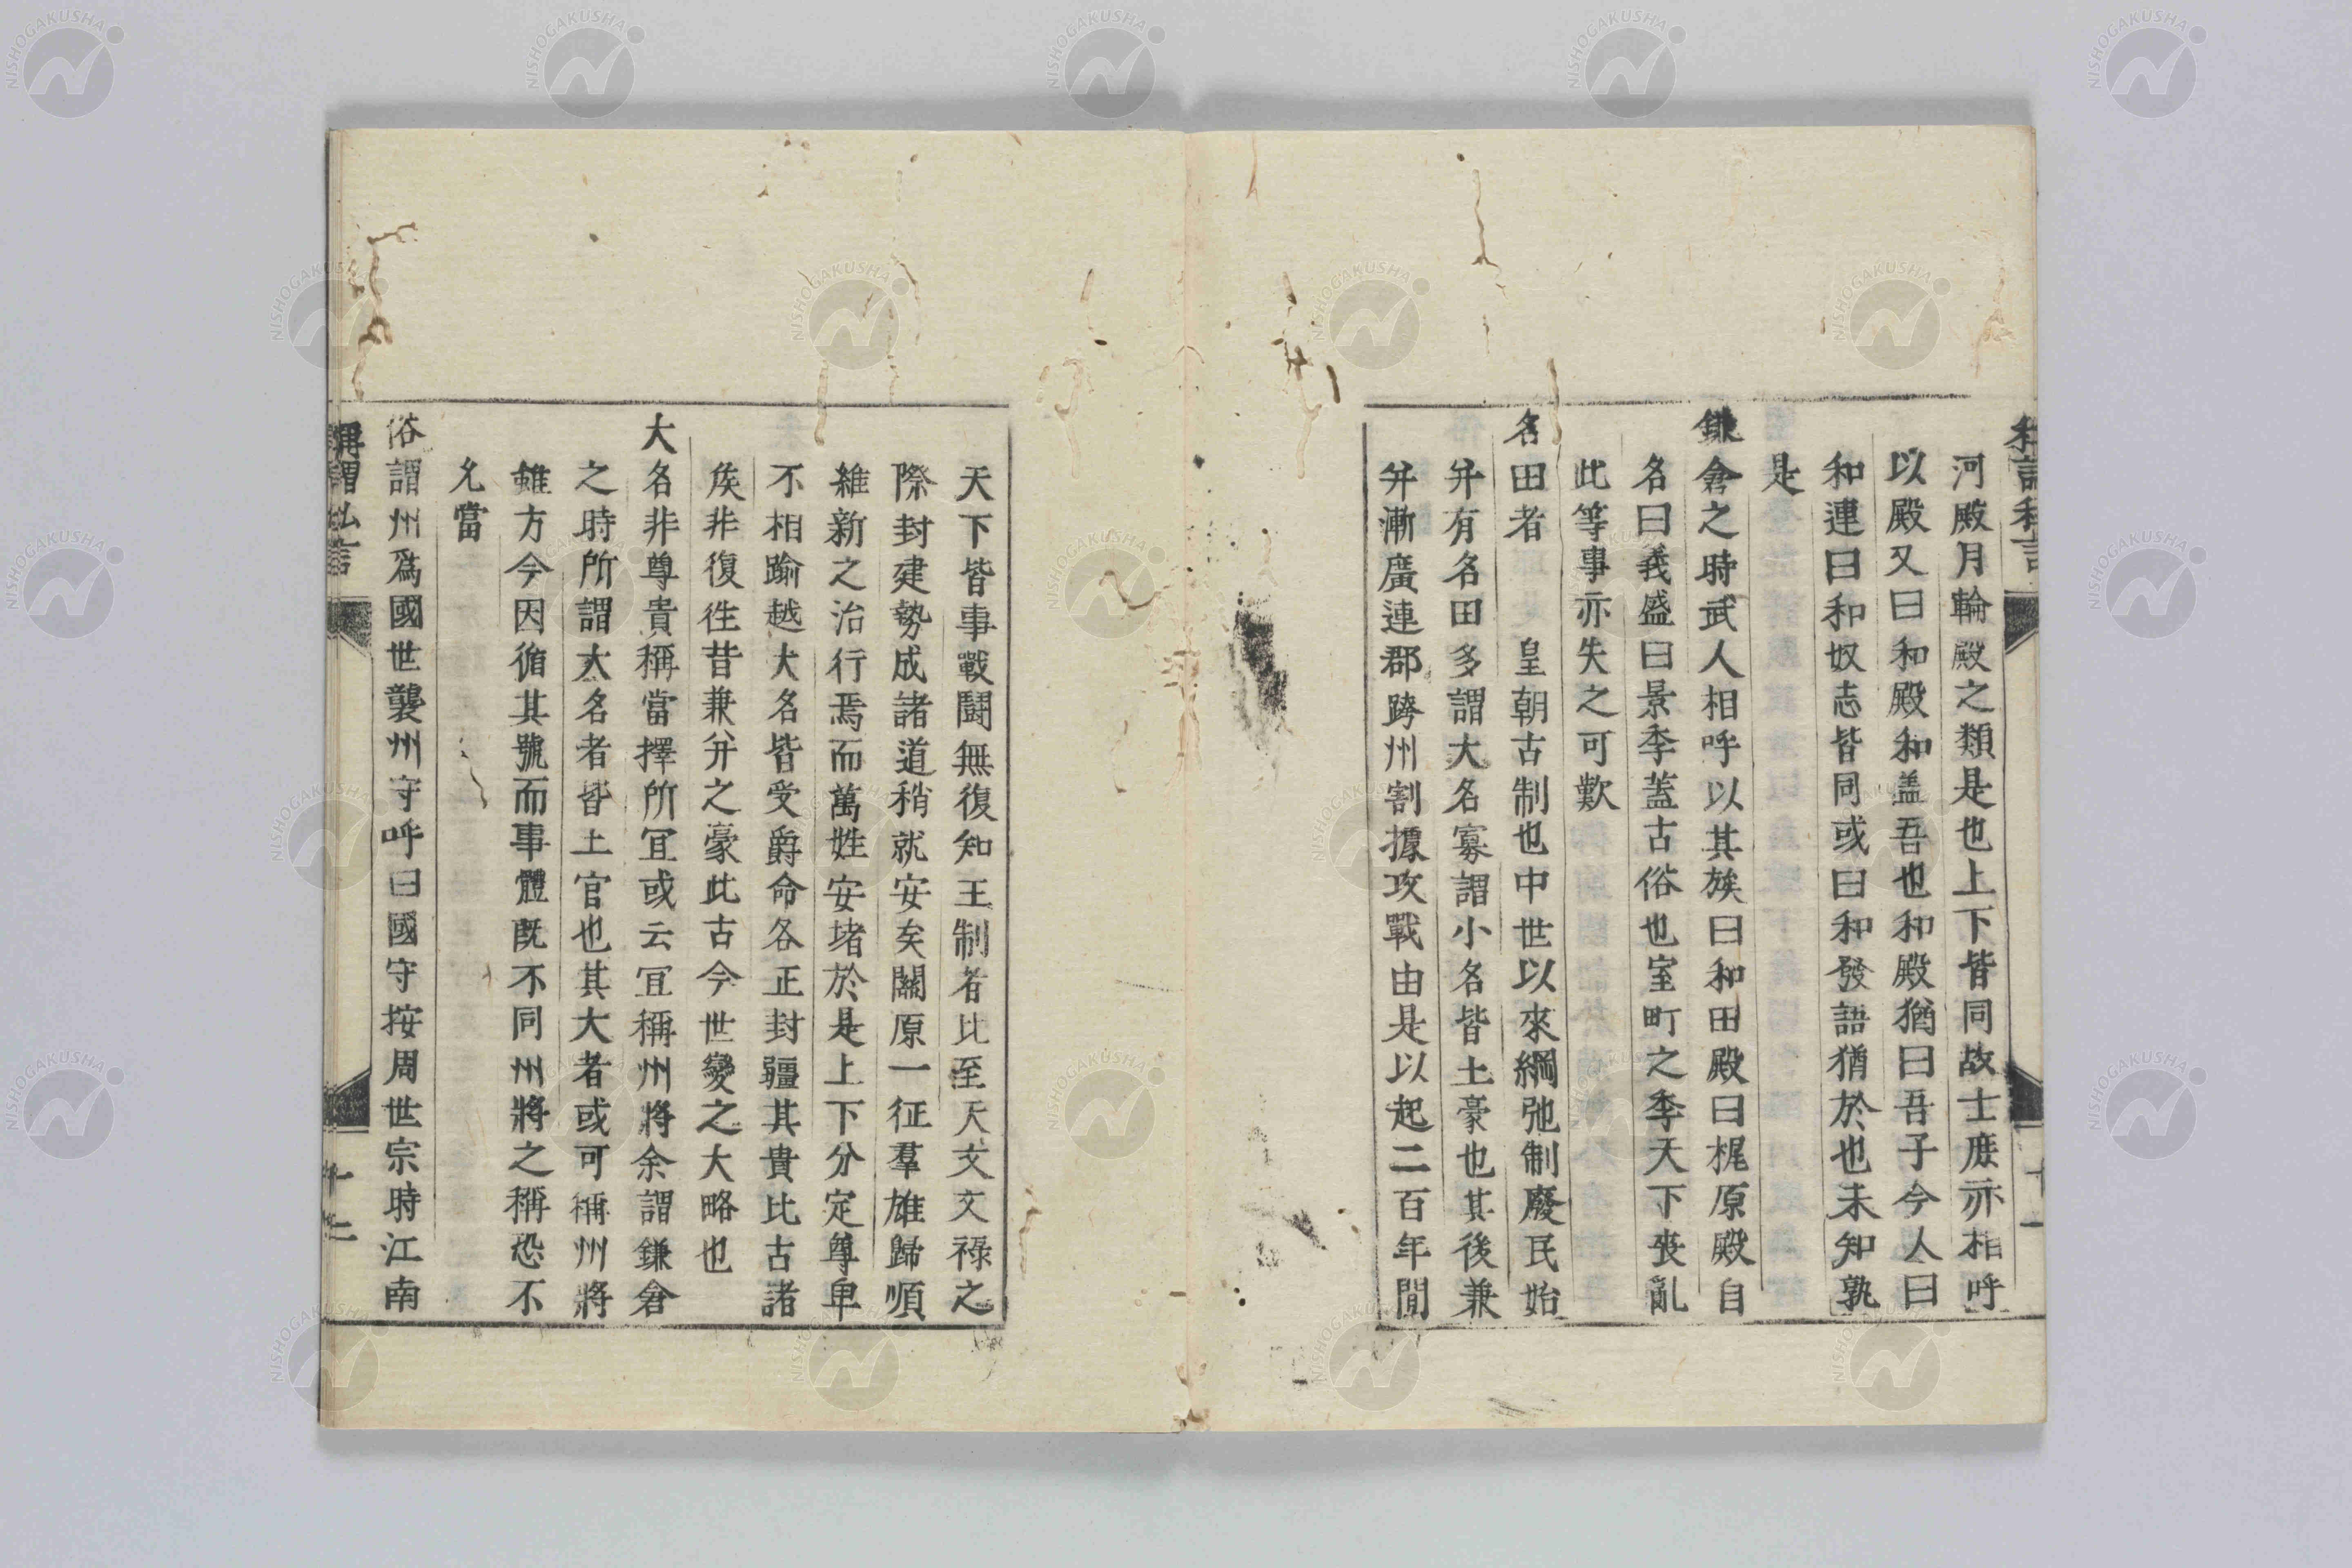 稱謂私言
十一
河殿月輪殿之類是也上下皆同故士庶亦相呼
以殿又曰和殿和盖吾也和殿猶曰吾子今人曰
和連曰和奴志皆同或曰和發語猶於也未知孰
是
鎌倉之時武人相呼以其族曰和田殿曰梶原殿自
名曰義盛曰景季蓋古俗也室町之季天下喪亂
此等事亦失之可歎
名田者　皇朝古制也中世以來綱弛制廢民始
幷有名田多謂大名寡謂小名皆土豪也其後兼
幷漸廣連郡跨州割據攻戰由是以起二百年間
天下皆事戰鬪無復知王制者比至天文文祿之
際封建勢成諸道稍就安矣關原一征羣雄歸順
維新之治行焉而萬姓安堵於是上下分定尊卑
不相踰越大名皆受爵命各正封疆其貴比古諸
矦非復徃昔兼幷之豪此古今世變之大略也
大名非尊貴稱當擇所宜或云宜稱州將余謂鎌倉
之時所謂大名者皆土官也其大者或可稱州將
雖方今因循其號而事體旣不同州將之稱恐不
允當
俗謂州爲國世襲州守呼曰國守按周世宗時江南
稱謂私言
十二
NISHOGAKUSHA